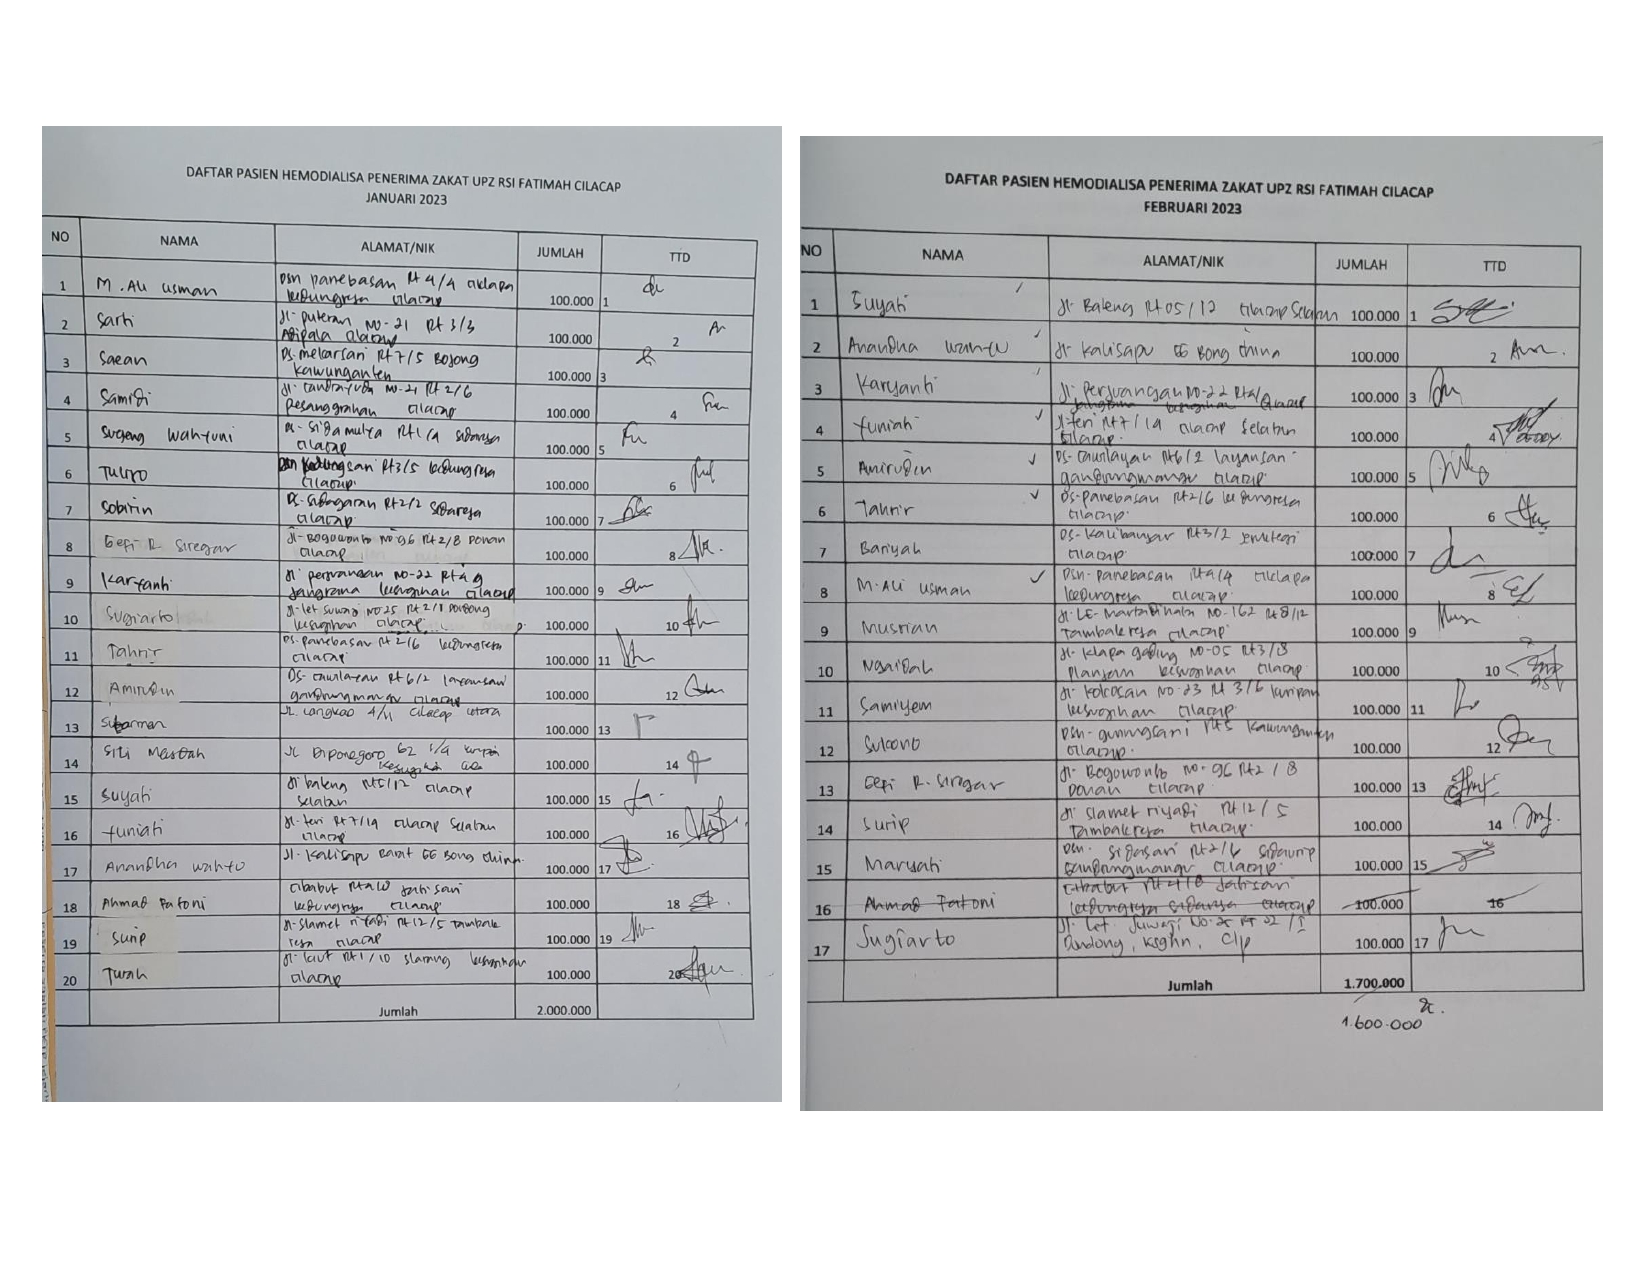 DAFTAR PASIEN HEMODIALISA PENERIMA ZAKAT UPZ RSI FATIMAH CILACAP
JANUARI 2023
NO NAMA ALAMAT/NIK JUMLAH TTD
1 M. Ali usman Dsn panebasan Rt 4/4 ciklapa
kedungreja cilacap 100.000 1
2 Sarti Jl. puteran no-21 Rt 3/3
Adipala cilacap 100.000 2
3 Saean Ds. mekarsari Rt 7/5 Bojong
kawunganten 100.000 3
4 Samidi Jl. no-21 Rt 2/6
pesanggrahan cilacap 100.000 4
5 Sugeng wahyuni Jl. sidamulya Rt 1/4 sidareja
cilacap 100.000 5
6 Dsn Rt 3/5 kedungreja
cilacap. 100.000 6
7 Sobirin Ds. Rt 2/2 sidareja
cilacap. 100.000 7
8 Gefi R. Siregar Jl. Bogowonto no.96 Rt 2/8 Donan
cilacap 100.000 8
9 Karyanti Jl. perjuangan no-22 Rt 4/9
Jangrana kesugihan cilacap 100.000 9
10 Sugiarto Jl. let suwaji no 25 Rt 2/1 Dondong
kesugihan cilacap 100.000 10
11 Tahrir Ds. panebasan Rt 2/6 kedungreja
cilacap. 100.000 11
12 Amirudin Ds. Rt 6/2 layansari
gandrungmangu cilacap 100.000 12
13 Jl. 4/11 cilacap utara 100.000 13
14 Siti Jl. Diponegoro 62
Kesugihan 100.000 14
15 Suyati Jl. baleng Rt 5/12 cilacap
selatan 100.000 15
16 Yuniati Jl. teri Rt 7/14 cilacap selatan
cilacap 100.000 16
17 Anandha wahyu Jl. Kalisapu Barat GG Bong china. 100.000 17
18 Ahmad Fatoni Cibabut Rt 4/8 Jatisari
kedungreja cilacap. 100.000 18
19 Surip Jl. slamet riyadi Rt 12/5 Tambak
reja cilacap 100.000 19
20 Turah Jl. laut Rt 1/10 slarang kesugihan
cilacap 100.000 20
Jumlah 2.000.000
DAFTAR PASIEN HEMODIALISA PENERIMA ZAKAT UPZ RSI FATIMAH CILACAP
FEBRUARI 2023
NO NAMA ALAMAT/NIK JUMLAH TTD
1 Suyati Jl. Baleng Rt 05/12 cilacap Selatan 100.000 1
2 Anandha wahyu Jl. Kalisapu GG Bong china 100.000 2
3 Karyanti Jl. perjuangan no-22 Rt 4/9 cilacap
Jangrana kesugihan 100.000 3
4 Yuniati Jl. teri Rt 7/14 cilacap selatan
cilacap. 100.000 4
5 Amirudin Ds. Rt 6/2 layansari
gandrungmangu cilacap. 100.000 5
6 Tahrir Ds. panebasan Rt 2/6 kedungreja
cilacap. 100.000 6
7 Bariyah Ds. Kalibangkar Rt 3/2 Jeruklegi
cilacap. 100.000 7
8 M. Ali usman Dsn. panebasan Rt 4/4 ciklapa
kedungreja cilacap. 100.000 8
9 Musrian Jl. L.E. Martadinata no-162 Rt 8/12
Tambakreja cilacap. 100.000 9
10 Ngaidah Jl. klapa gading no-05 Rt 3/8
Planjan kesugihan cilacap. 100.000 10
11 Samiyem Jl. kokosan no-23 Rt 3/6 kuripan
kesugihan cilacap. 100.000 11
12 Sulcono Dsn. gunungsari Rt 5 kawunganten
cilacap. 100.000 12
13 Gefi R. Siregar Jl. Bogowonto no. 96 Rt 2/8
Donan cilacap. 100.000 13
14 Surip Jl. slamet riyadi Rt 12/5
Tambakreja cilacap. 100.000 14
15 Maryati Dsn. sidasari Rt 2/6 sidaurip
gandrungmangu cilacap. 100.000 15
16 Ahmad Fatoni Cibabut Rt 4/8 Jatisari
kedungreja sidareja cilacap 100.000 16
17 Sugiarto Jl. Let. Juwaji No. 25 Rt 02/I
Dondong, Ksghn, Clp 100.000 17
Jumlah 1.700.000
1.600.000